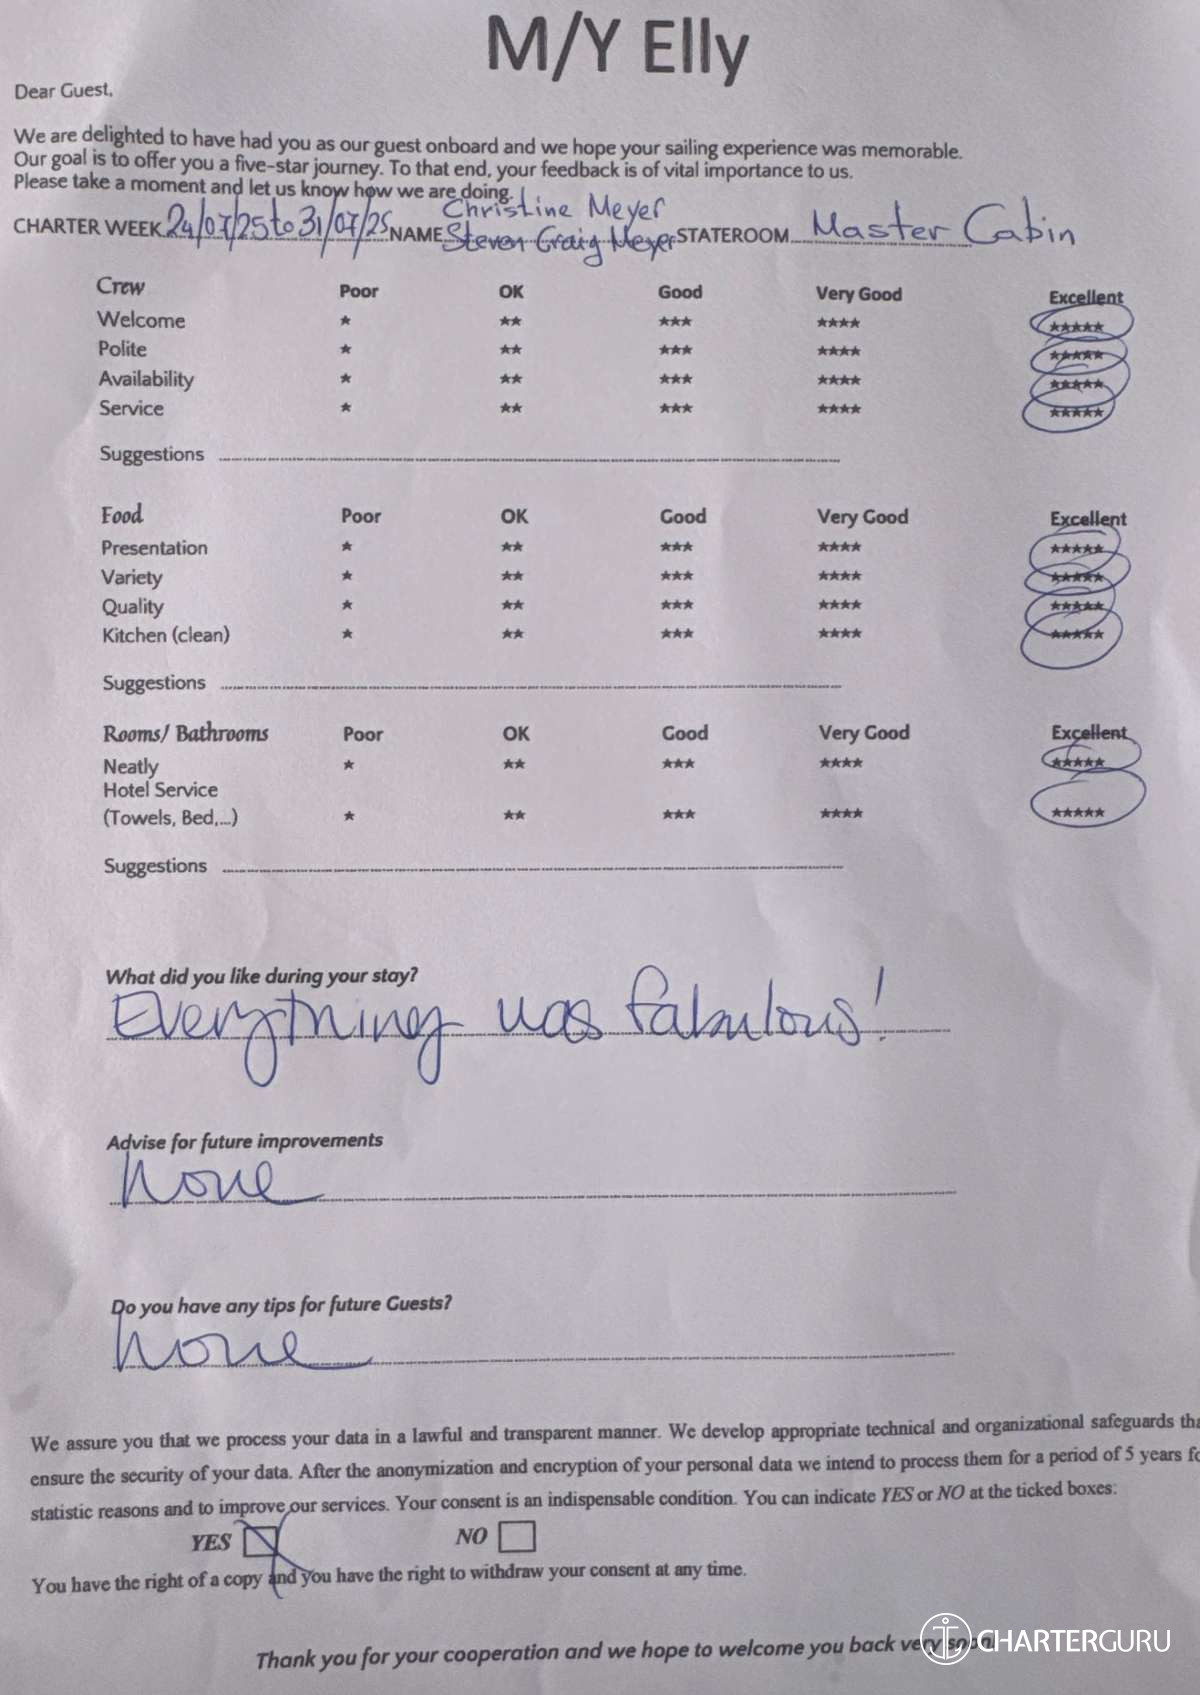 M/Y Elly
Dear Guest,
We are delighted to have had you as our guest onboard and we hope your sailing experience was memorable.
Our goal is to offer you a five-star journey. To that end, your feedback is of vital importance to us.
Please take a moment and let us know how we are doing.
Christine Meyer
CHARTER WEEK 24/07/25 to 31/07/25 NAME Steven Craig Meyer STATEROOM Master Cabin
Crew Poor OK Good Very Good Excellent
Welcome ★ ★★ ★★★ ★★★★ ★★★★★
Polite ★ ★★ ★★★ ★★★★ ★★★★★
Availability ★ ★★ ★★★ ★★★★ ★★★★★
Service ★ ★★ ★★★ ★★★★ ★★★★★
Suggestions
Food Poor OK Good Very Good Excellent
Presentation ★ ★★ ★★★ ★★★★ ★★★★★
Variety ★ ★★ ★★★ ★★★★ ★★★★★
Quality ★ ★★ ★★★ ★★★★ ★★★★★
Kitchen (clean) ★ ★★ ★★★ ★★★★ ★★★★★
Suggestions
Rooms/ Bathrooms Poor OK Good Very Good Excellent
Neatly ★ ★★ ★★★ ★★★★ ★★★★★
Hotel Service
(Towels, Bed,...) ★ ★★ ★★★ ★★★★ ★★★★★
Suggestions
What did you like during your stay?
Everything was fabulous!
Advise for future improvements
None
Do you have any tips for future Guests?
None
We assure you that we process your data in a lawful and transparent manner. We develop appropriate technical and organizational safeguards tha
ensure the security of your data. After the anonymization and encryption of your personal data we intend to process them for a period of 5 years fo
statistic reasons and to improve our services. Your consent is an indispensable condition. You can indicate YES or NO at the ticked boxes:
YES NO
You have the right of a copy and you have the right to withdraw your consent at any time.
Thank you for your cooperation and we hope to welcome you back very soon
CHARTERGURU